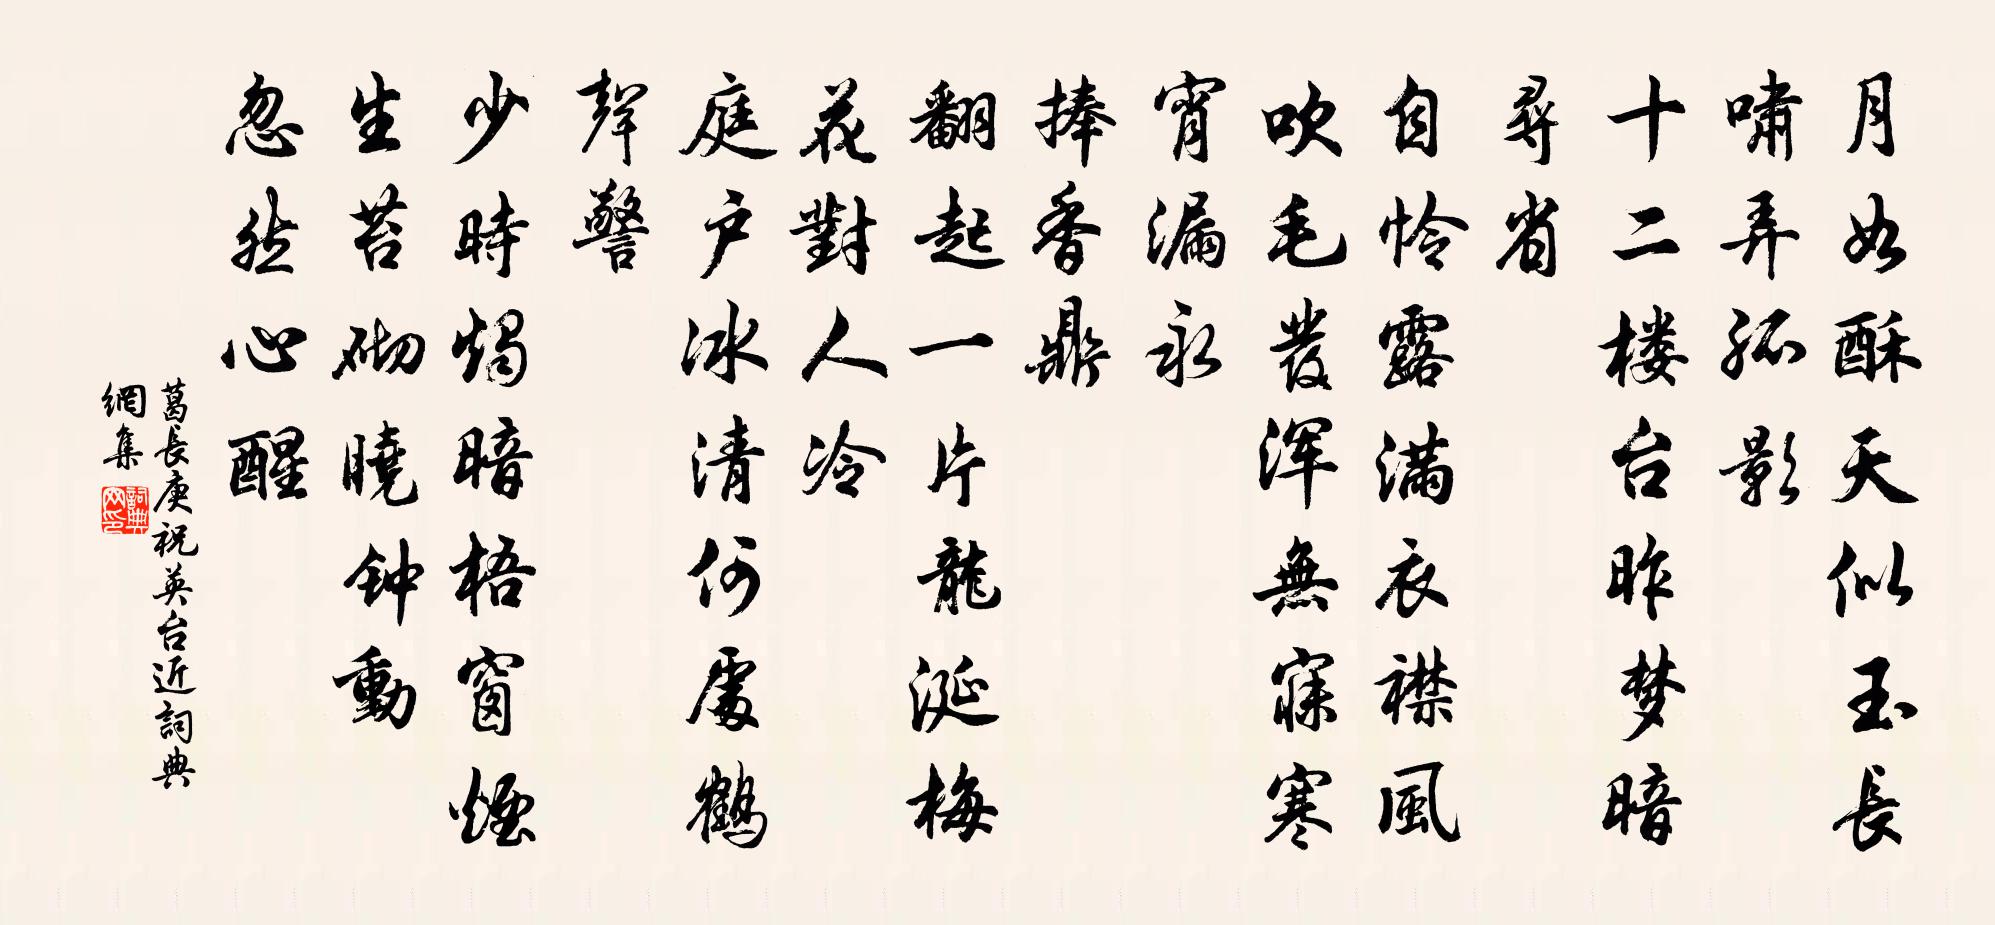 月如酥天似玉長
嘯弄孤影
十二楼台昨梦暗
尋省
自怜露满衣襟風
吹毛發浑無寐寒
宵漏永
捧香鼎
翻起一片龍涎梅
花對人冷
庭户冰清何處鶴
聲警
少時燭暗梧窗煙
生苔砌曉钟動
忽然心醒
葛長庚祝英台近詞典
網集
詞典
网印